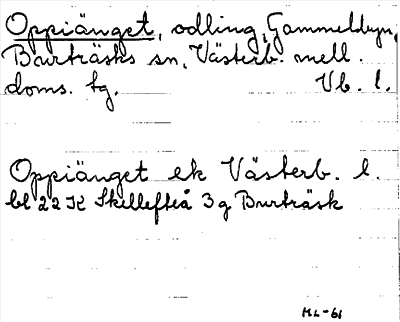 Oppiänget, odling, Gammelbyn,
Burträsks sn, Västerb. mell.
doms. tg. Vb. l.
Oppiänget ek Västerb. l.
bl 22 K Skellefteå 3g Burträsk
ML-61